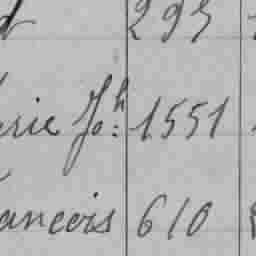 295
erie Jh: 1551
ancois 610